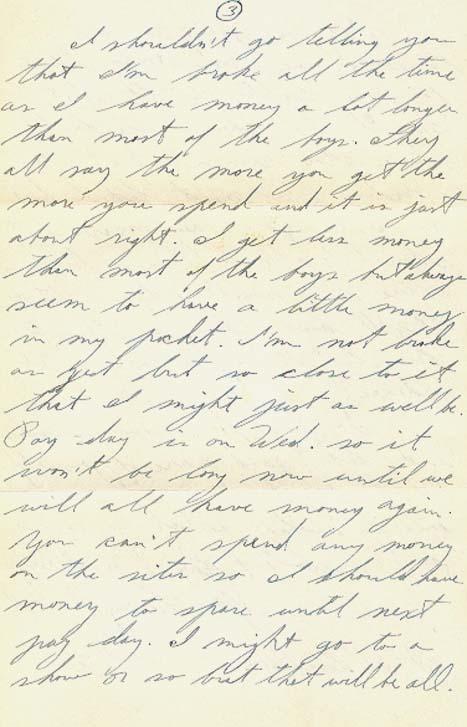 3
I shouldn't go telling you
that I'm broke all the time
as I have money a lot longer
than most of the boys. They
all say the more you get the
more you spend and it is just
about right. I get less money
than most of the boys but always
seem to have a little money
in my pocket. I'm not broke
as yet but so close to it
that I might just as well be.
Pay-day is on Wed. so it
won't be long now until we
will all have money again.
You can't spend any money
on the sites so I should have
money to spare until next
pay day. I might go to a
show or so but that will be all.